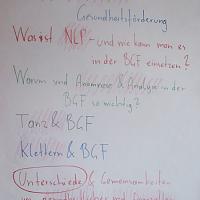 Gesundheitsförderung
Was ist NLP - und wie kann man es
in der BGF einsetzen?
Warum und Anamnese & Analyse in der
BGF so wichtig?
Tanz & BGF
Klettern & BGF
Unterschiede & Gemeinsamkeiten